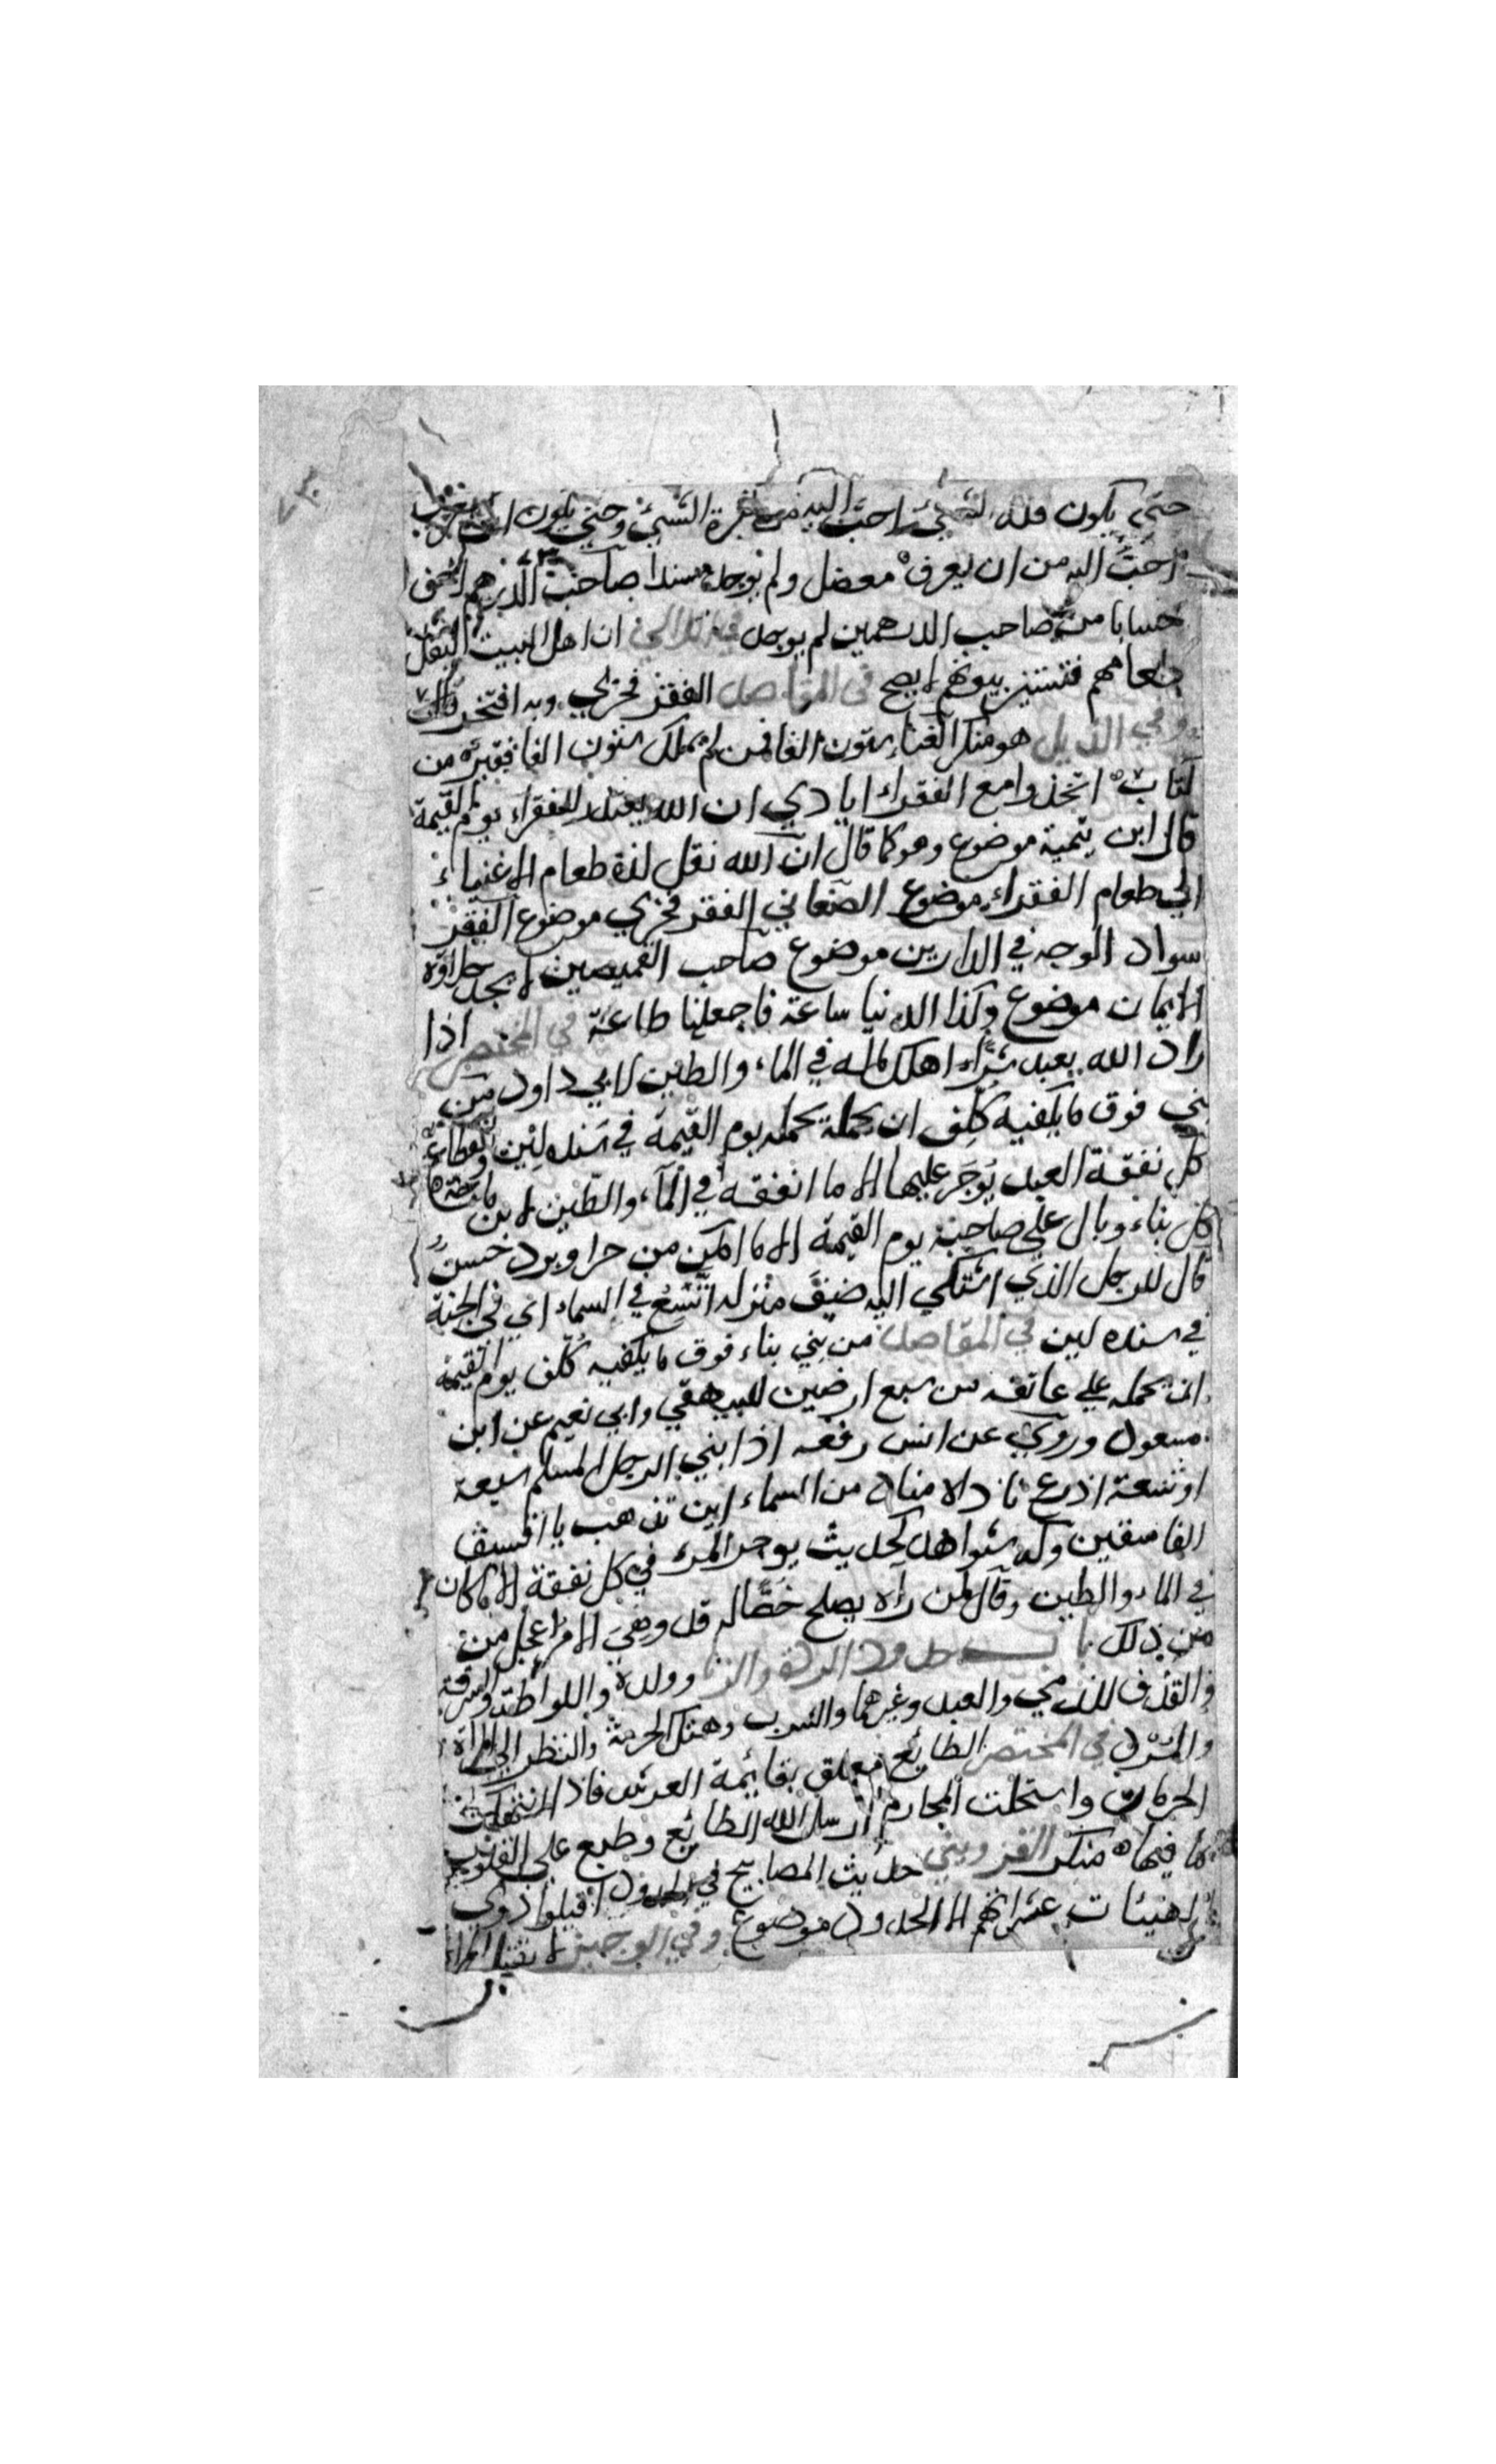 حتى يكون قلة الشيئ احبَّ اليه من كثرة الشيئ وحتى يكون ان لا يعرف
احَبَّ اليه من ان يعرف معضل ولم نوجد مسندا صاحب الدرهم اخف
حسابا من صاحب الدرهمين لم يوجد ان اهل البيت ليقل
طعامهم فتستنير بيوتهم لا يصح في المقاصد الفقر فخري وبه افتخر
وفي الذيل هو منكر الغناء ستون الفا فمن لم يملك ستون الفا فقير من
اتخذوا مع الفقراء ايادي ان الله يعتذر للفقراء يوم القيمة
قال ابن تيمية موضوع وهو كما قال ان الله نقل لذة طعام الاغنياء
الى طعام الفقراء موضوع الصغاني الفقر فخري موضوع الفقر
سواد الوجه في الدارين موضوع صاحب القميصين لا يجد حلاوة
الايمان موضوع وكذا الدنيا ساعة فاجعلها طاعة في المختصر اذا
راد الله بعبد شرًّا اهلك ماله في الماء والطين لابي داود من
بني فوق ما يكفيه كلف ان يحمله يوم القيمة في سنده لين وانقطاع
كل نفقة العبد يُوجَر عليها الا ما انفقه في المآء والطين لابن ماجة
كل بناء وبال على صاحبه يوم القيمة الا ما اكن من حر او برد حسن
قال للرجل الذي اشتكي اليه ضيق منزله اتّسِعُ في السماء اي في الجنة
في سنده لين في المقاصد من بني بناء فوق ما يكفيه كُلّف يوم القيمة
ان يحمله علي عاتقه من سبع ارضين للبيهقي وابي نعيم عن ابن
مسعود وروي عن انس رفعه اذا بني الرجل المسلم سبعة
او تسعة اذرع ناداه مناد من السماء اين تذهب يا افسق
الفاسقين وله شواهد كحديث يوجر المرء في كل نفقة الا ما كان
في الماء والطين وقال لمن رآه يصلح خصًّا له قد وهي الامر اعجل من
من ذلك باب حدود الردة والزنا وولده واللواطة والسرقة
والقذف للذمي والعبد وغيرهما والشرب وهتك الحرمة والنظر الي المرأة
والمرد في المختصر الطابع معلق بقائمة العرش فاذا انتهكت
الحرمات واستحلت المحارم ارسل الله الطابع وطبع علي القلوب
بما فيها منكر القزويني حديث المصابيح في الحدود اقيلوا ذوي
الهيئات عثراتهم الا الحدود موضوع وفي الوجيز لا تقتل المرأة